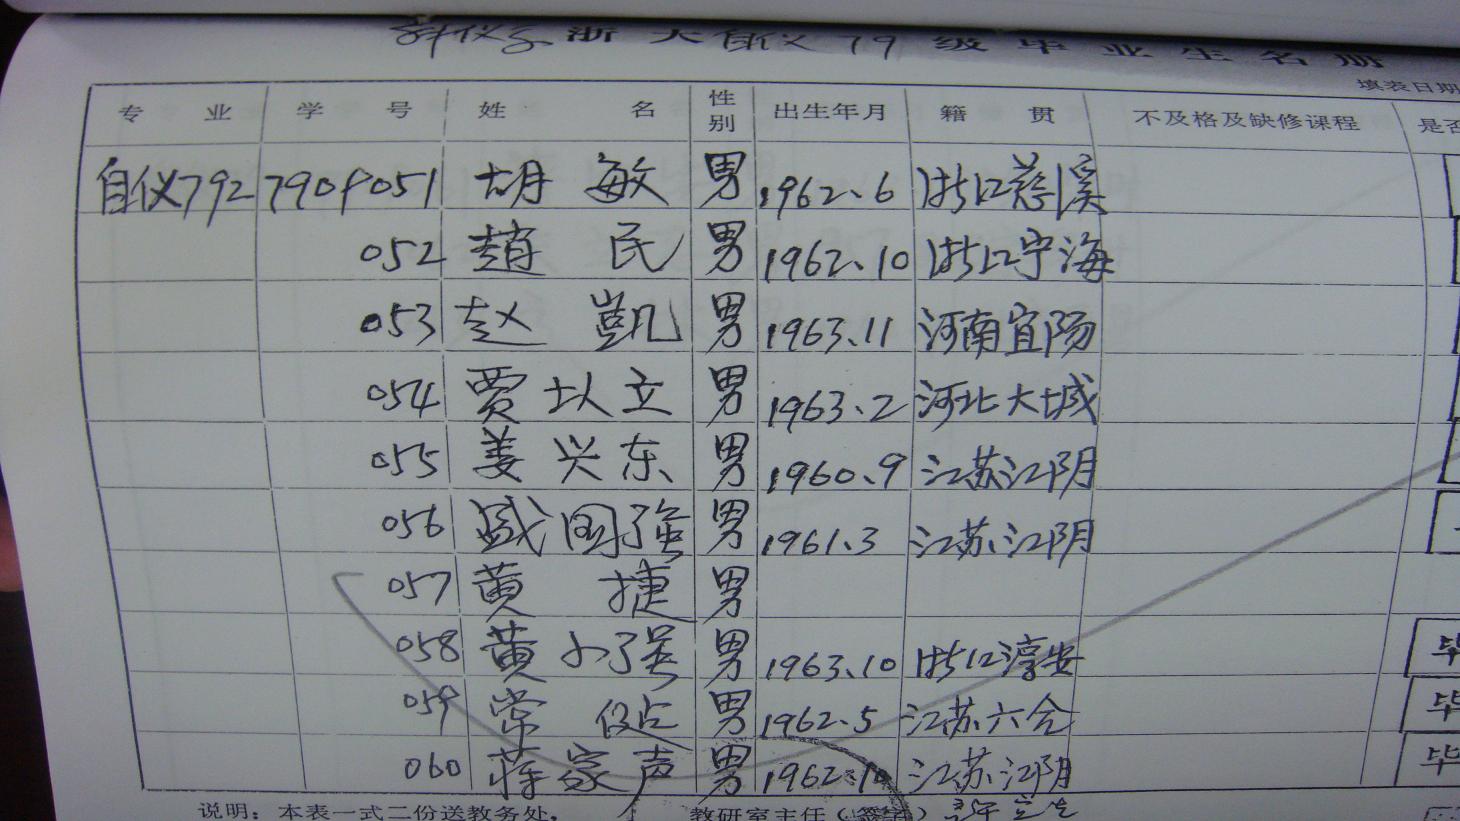 科仪系 浙大自仪79级毕业生名册
填表日期
专业 学号 姓名 性别 出生年月 籍贯 不及格及缺修课程 是否
自仪792 7909051 胡敏 男 1962.6 浙江慈溪
052 趙民 男 1962.10 浙江宁海
053 赵凱 男 1963.11 河南宜阳
054 贾以立 男 1963.2 河北大城
055 姜兴东 男 1960.9 江苏江阴
056 盛国强 男 1961.3 江苏江阴
057 黄捷 男
058 黄小强 男 1963.10 浙江淳安 毕
059 常 男 1962.5 江苏六合 毕
060 蒋家声 男 1962.10 江苏江阴 毕
说明：本表一式二份送教务处， 教研室主任（签字）